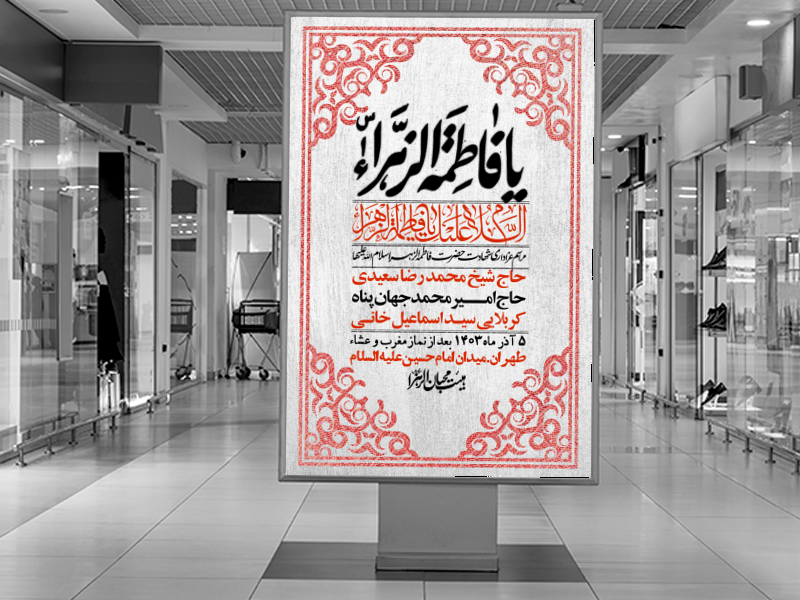 یا فاطمة الزهراء
السلام علیک یا فاطمة الزهراء
مراسم عزاداری شهادت حضرت فاطمه الزهرا سلام الله علیها
حاج شیخ محمدرضا سعیدی
حاج امیر محمد جهان پناه
کربلایی سید اسماعیل خانی
۵ آذر ماه ۱۴۰۳ بعد از نماز مغرب و عشاء
طهران.میدان امام حسین علیه السلام
هیئت محبان الزهرا